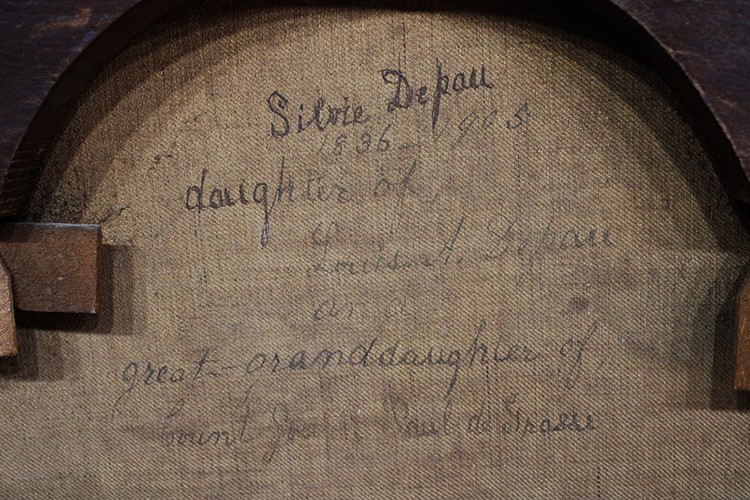 Silvie Depau
1836 - 905
daughter of
Louis A. Depau
and
great-granddaughter of
Count Joseph Paul de Grasse